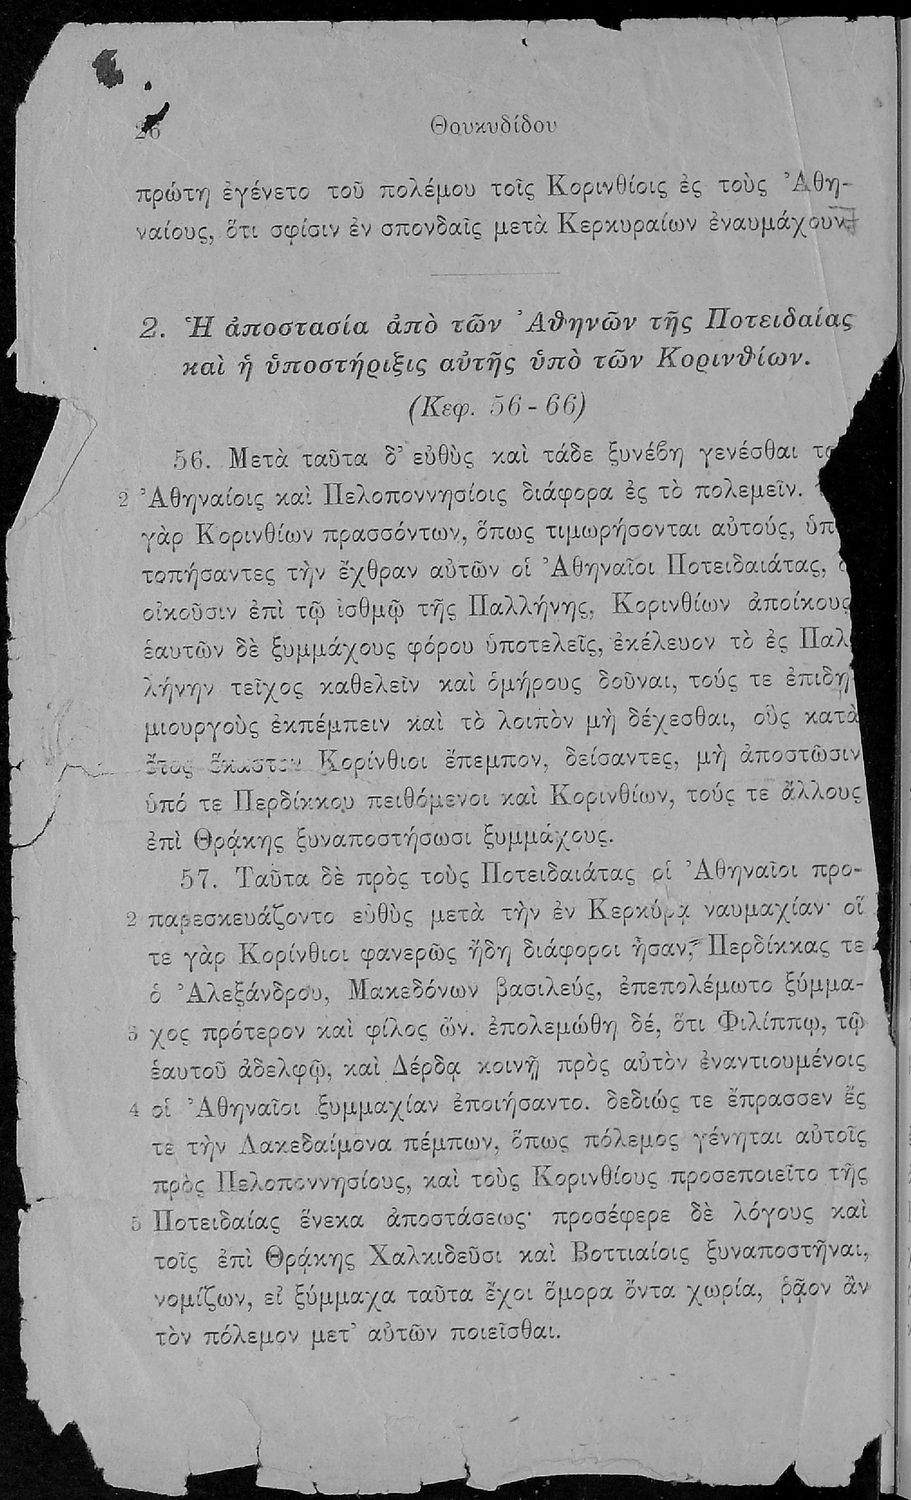 26 Θουκυδίδου
πρώτη ἐγένετο τοῦ πολέμου τοῖς Κορινθίοις ἐς τοὺς Ἀθη-
ναίους, ὅτι σφίσιν ἐν σπονδαῖς μετὰ Κερκυραίων ἐναυμάχουν.
2. Ἡ ἀποστασία ἀπὸ τῶν Ἀθηνῶν τῆς Ποτειδαίας
καὶ ἡ ὑποστήριξις αὐτῆς ὑπὸ τῶν Κορινθίων.
(Κεφ. 56-66)
56. Μετὰ ταῦτα δ’ εὐθὺς καὶ τάδε ξυνέβη γενέσθαι
2 Ἀθηναίοις καὶ Πελοποννησίοις διάφορα ἐς τὸ πολεμεῖν.
γὰρ Κορινθίων πρασσόντων, ὅπως τιμωρήσονται αὐτούς, ὑπ
τοπήσαντες τὴν ἔχθραν αὐτῶν οἱ Ἀθηναῖοι Ποτειδαιάτας,
οἰκοῦσιν ἐπὶ τῷ ἰσθμῷ τῆς Παλλήνης, Κορινθίων ἀποίκους
ἑαυτῶν δὲ ξυμμάχους φόρου ὑποτελεῖς, ἐκέλευον τὸ ἐς Παλ
λήνην τεῖχος καθελεῖν καὶ ὁμήρους δοῦναι, τούς τε ἐπιδη
μιουργοὺς ἐκπέμπειν καὶ τὸ λοιπὸν μὴ δέχεσθαι, οὓς κατὰ
ἔτος ἕκαστον Κορίνθιοι ἔπεμπον, δείσαντες, μὴ ἀποστῶσιν
ὑπό τε Περδίκκου πειθόμενοι καὶ Κορινθίων, τούς τε ἄλλους
ἐπὶ Θρᾴκης ξυναποστήσωσι ξυμμάχους.
57. Ταῦτα δὲ πρὸς τοὺς Ποτειδαιάτας οἱ Ἀθηναῖοι προ-
2 παρεσκευάζοντο εὐθὺς μετὰ τὴν ἐν Κερκύρᾳ ναυμαχίαν· οἵ
τε γὰρ Κορίνθιοι φανερῶς ἤδη διάφοροι ἦσαν, Περδίκκας τε
ὁ Ἀλεξάνδρου, Μακεδόνων βασιλεύς, ἐπεπολέμωτο ξύμμα-
3 χος πρότερον καὶ φίλος ὤν. ἐπολεμώθη δέ, ὅτι Φιλίππῳ, τῷ
ἑαυτοῦ ἀδελφῷ, καὶ Δέρδᾳ κοινῇ πρὸς αὐτὸν ἐναντιουμένοις
4 οἱ Ἀθηναῖοι ξυμμαχίαν ἐποιήσαντο. δεδιώς τε ἔπρασσεν ἔς
τε τὴν Λακεδαίμονα πέμπων, ὅπως πόλεμος γένηται αὐτοῖς
πρὸς Πελοποννησίους, καὶ τοὺς Κορινθίους προσεποιεῖτο τῆς
5 Ποτειδαίας ἕνεκα ἀποστάσεως· προσέφερε δὲ λόγους καὶ
τοῖς ἐπὶ Θρᾴκης Χαλκιδεῦσι καὶ Βοττιαίοις ξυναποστῆναι,
νομίζων, εἰ ξύμμαχα ταῦτα ἔχοι ὅμορα ὄντα χωρία, ῥᾷον ἂν
τὸν πόλεμον μετ’ αὐτῶν ποιεῖσθαι.